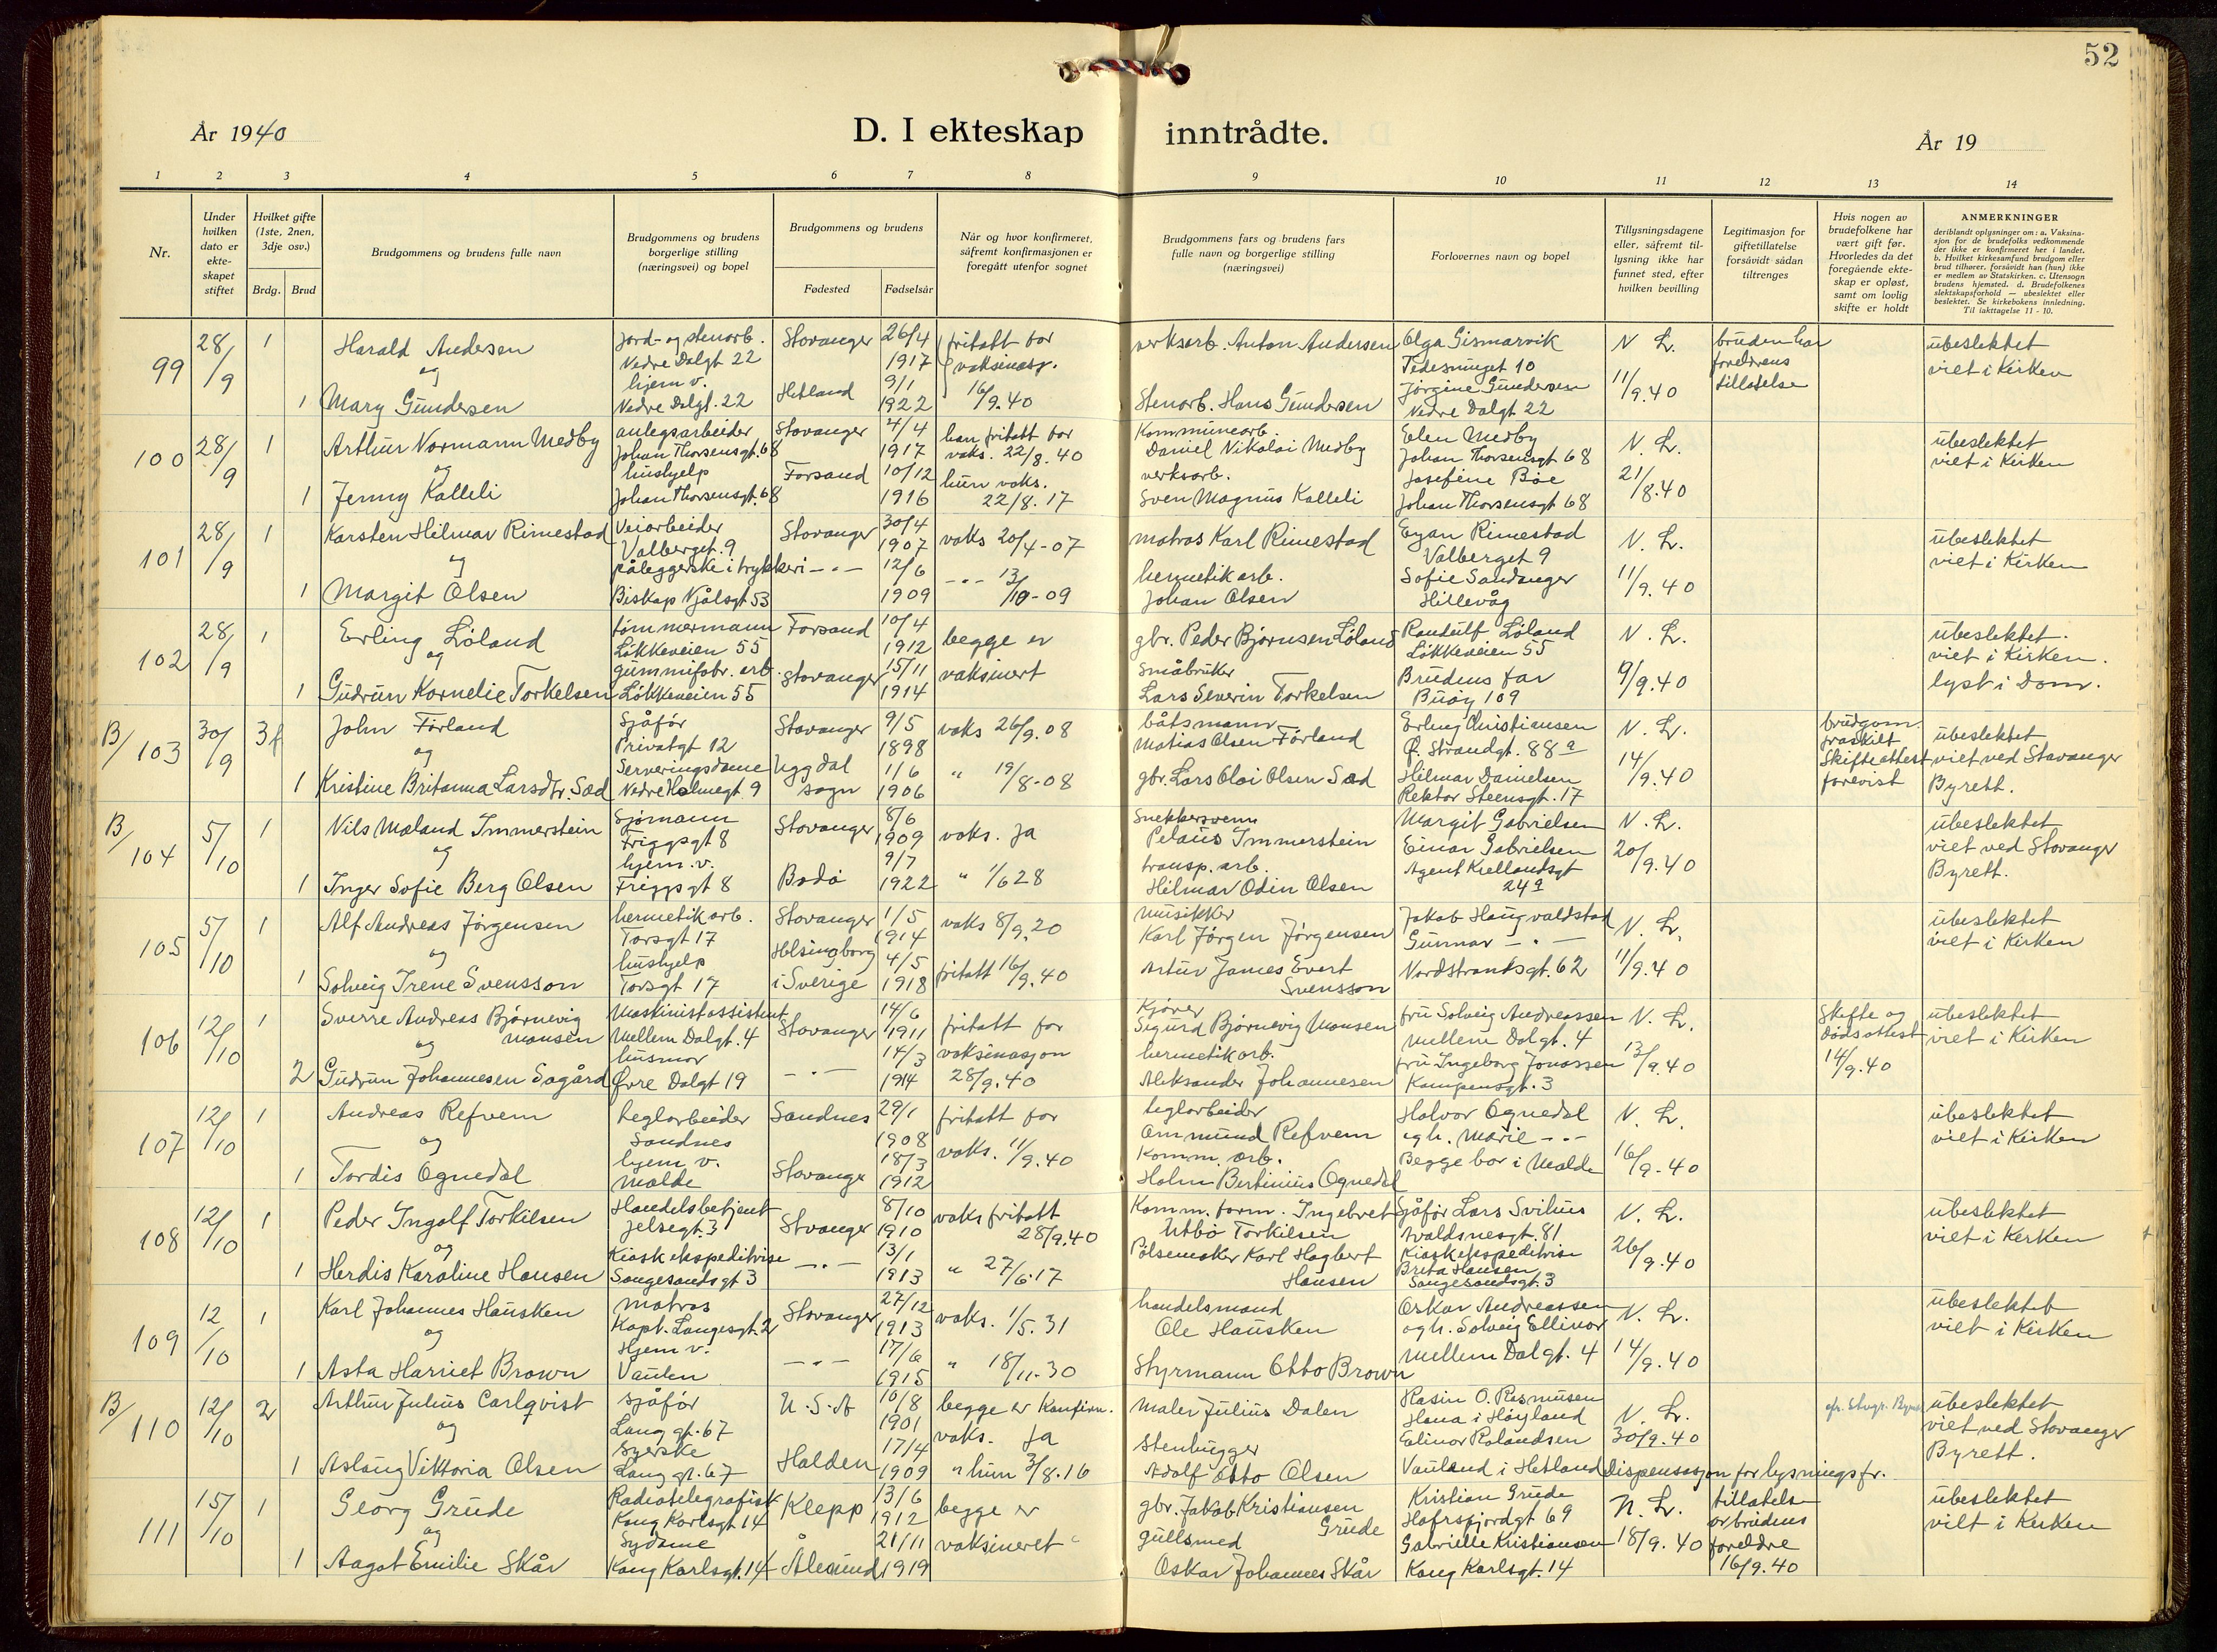 52
År 1940
D. I ekteskap inntrådte.
År 19
1 2 3 4 5 6 7 8 9 10 11 12 13 14
Nr.
Under hvilken dato er ekteskapet stiftet
Hvilket gifte (1ste, 2nen, 3dje osv.)
Brdg. Brud
Brudgommens og brudens fulle navn
Brudgommens og brudens borgerlige stilling (næringsvei) og bopel
Brudgommens og brudens
Fødested Fødselsår
Når og hvor konfirmeret, såfremt konfirmasjonen er foregått utenfor sognet
Brudgommens fars og brudens fars fulle navn og borgerlige stilling (næringsvei)
Forlovernes navn og bopel
Tillysningsdagene eller, såfremt tillysning ikke har funnet sted, efter hvilken bevilling
Legitimasjon for giftetillatelse forsåvidt sådan tiltrenges
Hvis nogen av brudefolkene har vært gift før. Hvorledes da det foregående ekteskap er opløst, samt om lovlig skifte er holdt
ANMERKNINGER
deriblandt oplysninger om: a. Vaksinasjon for de brudefolks vedkommende der ikke er konfirmeret her i landet. b. Hvilket kirkesamfund brudgom eller brud tilhører, forsåvidt han (hun) ikke er medlem av Statskirken. c. Utensogn brudens hjemsted. d. Brudefolkenes slektskapsforhold — ubeslektet eller beslektet. Se kirkebokens innledning. Til iakttagelse 11 - 10.
99 28/9 1 Harald Andersen jord- og stenarb. Nedre Dalgt 22 Stavanger 26/4 1917 fritatt for vaksinasj. 16/9.40 verksarb. Anton Andersen Olga Gismarvik 10 N. L. 11/9.40 bruden har foreldrens tillatelse ubeslektet viet i Kirken
og
1 Mary Gundersen hjem v. Nedre Dalgt. 22 Hetland 9/1 1922 Stenarb. Hans Gundersen Jørgine Gundersen Nedre Dalgt 22
100 28/9 1 Arthur Normann Medby anlegsarbeider Johan Thorsensgt. 68 Stavanger 4/4 1917 han fritatt for vaks. 22/8.40 Kommunearb. Daniel Nikolai Medby Elen Medby Johan Thorsensgt 68 N. L. 21/8.40 ubeslektet viet i Kirken
og
1 Jenny Kalleli hushjelp Johan Thorsensgt. 68 Forsand 10/12 1916 hun vaks. 22/8.17 verksarb. Sven Magnus Kalleli Josefine Bøe Johan Thorsensgt 68
101 28/9 1 Karsten Hilmar Rimestad Veiarbeider Valberget. 9 Stavanger 30/4 1907 vaks 20/4-07 matros Karl Rimestad Egan Rimestad Valberget 9 N. L. 11/9.40 ubeslektet viet i Kirken
og
1 Margit Olsen påleggerske i trykkeri Biskop Njålsgt 53 - " - 12/6 1909 - " - 13/10-09 hermetikarb. Johan Olsen Sofie Sandanger Hillevåg
102 28/9 1 Erling Løland tømmermann Løkkeveien 55 Forsand 10/4 1912 begge er vaksinert gbr. Peder Bjørnsen Løland Randulf Løland Løkkeveien 55 N. L. 9/9.40 ubeslektet. viet i Kirken. lyst i Dom.
og
1 Gudrun Kornelie Torkelsen gummifabr. arb. Løkkeveien 55 Stavanger 15/11 1914 Småbruker Lars Severin Torkelsen Brudens far Buøy 109
B/ 103 30/9 3f John Førland Sjåfør Privatgt 12 Stavanger 9/5 1898 vaks 26/9.08 båtsmann Matias Olsen Førland Erling Christiansen Ø. Strandgt. 88a N. L. 14/9.40 brudgom. fraskilt Skifteattest forevist ubeslektet viet ved Stavanger Byrett.
og
1 Kristine Britanna Larsdtr. Sæd Serveringsdame Nedre Holmegt 9 Uggdal sogn 1/6 1906 " 19/8-08 gbr. Lars Olai Olsen Sæd Hilmar Danielsen Rektor Steensgt. 17
B/ 104 5/10 1 Nils Mæland Immerstein Sjømann Friggsgt 8 Stavanger 8/6 1909 vaks. Ja Snekkersvenn Pelaus Immerstein Margit Gabrielsen N. L. 20/9.40 ubeslektet viet ved Stavanger Byrett.
og
1 Inger Sofie Berg Olsen hjem. v. Friggsgt 8 Bodø 9/7 1922 " 1/6 28 transp. arb. Hilmar Odin Olsen Einar Gabrielsen Agent Kiellandsgt 24a
105 5/10 1 Alf Andreas Jørgensen hermetikarb. Torsgt 17 Stavanger 1/5 1914 vaks 8/9.20 musikker Karl Jørgen Jørgensen Jakob Haugvaldstad N. L. 11/9.40 ubeslektet viet i Kirken
og
1 Solveig Irene Svensson hushjelp Torsgt 17 Helsingborg i Sverige 4/5 1918 fritatt 16/9.40 Artur James Evert Svensson Gunnar - " - Nordstrandsgt. 62
106 12/10 1 Sverre Andreas Bjørnevig Monsen Maskinistassistent Mellem Dalgt. 4 Stavanger 14/6 1911 fritatt for vaksinasjon 28/9.40 Kjører Sigurd Bjørnevig Monsen fru Solveig Andreassen Mellem Dalgt. 4 N. L. 13/9.40 Skifte og dødsattest 14/9.40 ubeslektet viet i Kirken
og
2 Gudrun Johannesen Sagård husmor Øvre Dalgt 19 - " - 14/3 1914 hermetikarb. Aleksander Johannesen fru Ingeborg Jonassen Kampensgt. 3
107 12/10 1 Andreas Refvem teglarbeider Sandnes Sandnes 29/1 1908 fritatt for vaks. 11/9.40 teglarbeider Ommund Refvem Halvor Ognedal N. L. 16/9.40 ubeslektet viet i Kirken
og
1 Tordis Ognedal hjem v. Malde Stavanger 18/3 1912 Komm. arb. Holm Bertinius Ognedal ogh. Marie - " - Begge bor i Malde
108 12/10 1 Peder Ingolf Torkilsen Handelsbetjent Jelsegt. 3 Stvanger 8/10 1910 vaks fritatt 28/9.40 Komm. form. Ingebret Utbø Torkilsen Sjåfør Lars Svihus Avaldsnesgt. 81 N. L. 26/9.40 ubeslektet viet i Kirken
og
1 Herdis Karoline Hansen Kioskekspeditrise Saugesandsgt 3 - " - 13/1 1913 " 27/6.17 Pølsemaker Karl Hagbert Hansen Kioskekspeditrise Brita Hansen Saugesandsgt. 3
109 12/10 1 Karl Johannes Hausken matros Kapt. Langesgt. 2 Stavanger 27/12 1913 vaks. 1/5.31 handelsmand Ole Hausken Oskar Andreassen N. L. 14/9.40 ubeslektet viet i Kirken
og
1 Asta Harriet Brown Hjem v. Vaulen - " - 17/6 1915 " 18/11-30 Styrmann Otto Brown ogh. Solveig Ellinor Mellem Dalgt. 4
B/ 110 12/10 2 Arthur Julius Carlqvist sjåfør Lang gt. 67 U.S.A 10/8 1901 begge er Konfirm. vaks. Ja Maler Julius Dalen Rasin O. Rasmusen Hana i Høyland N. L. 30/9.40 Dispensasjon for lysningsfr. ubeslektet viet ved Stavanger Byrett.
og
1 Aslaug Viktoria Olsen Syerske Lang gt. 67 Halden 17/4 1909 " hun 3/8.16 Stenhugger Adolf Otto Olsen Ellinor Rolandsen Vauland i Hetland
111 15/10 1 Georg Grude Radiotelegrafist Kong Karlsgt 14 Klepp 13/6 1912 begge er vaksineret gbr. Jakob Kristiansen Grude Kristian Grude Hafrsfjordgt 69 N. L. 18/9.40 tillatelse av brudens foreldre 16/9.40 ubeslektet viet i Kirken
og
1 Aagot Emilie Skår Sydame Kong Karlsgt. 14 Ålesund 21/11 1919 gullsmed Oskar Johannes Skår Gabrielle Kristiansen Kong Karlsgt. 14